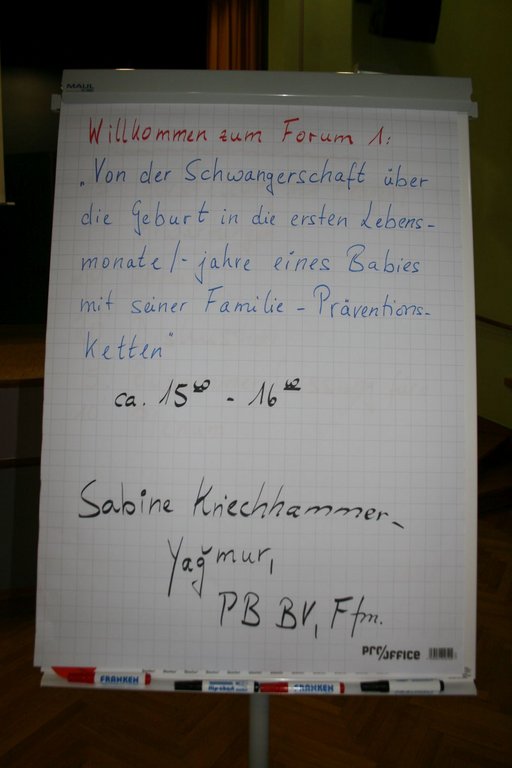 MAUL
Willkommen zum Forum 1:
„Von der Schwangerschaft über
die Geburt in die ersten Lebens-
monate/-jahre eines Babies
mit seiner Familie - Präventions-
Ketten"
ca. 15⁰⁰ - 16⁰⁰
Sabine Kriechhammer-
Yağmur,
PB BV, Ffm.
PRO/OFFICE
FRANKEN
FRANKEN